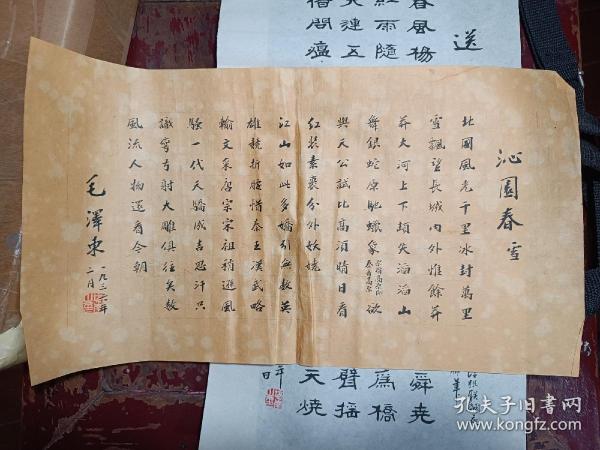 沁園春 雪
北國風光千里冰封萬里
雪飄望長城內外惟餘莽
莽大河上下頓失滔滔山
舞銀蛇原馳蠟象
欲
與天公試比高須晴日看
紅裝素裹分外妖嬈
江山如此多嬌引無數英
雄競折腰惜秦王漢武略
輸文采唐宗宋祖稍遜風
騷一代天驕成吉思汗只
識彎弓射大雕俱往矣數
風流人物還看今朝
毛澤東
一九三六年
二月
送
春風楊
紅雨隨
天連五
借問瘟
舜堯
為橋
臂搖
天燒
孔夫子旧书网